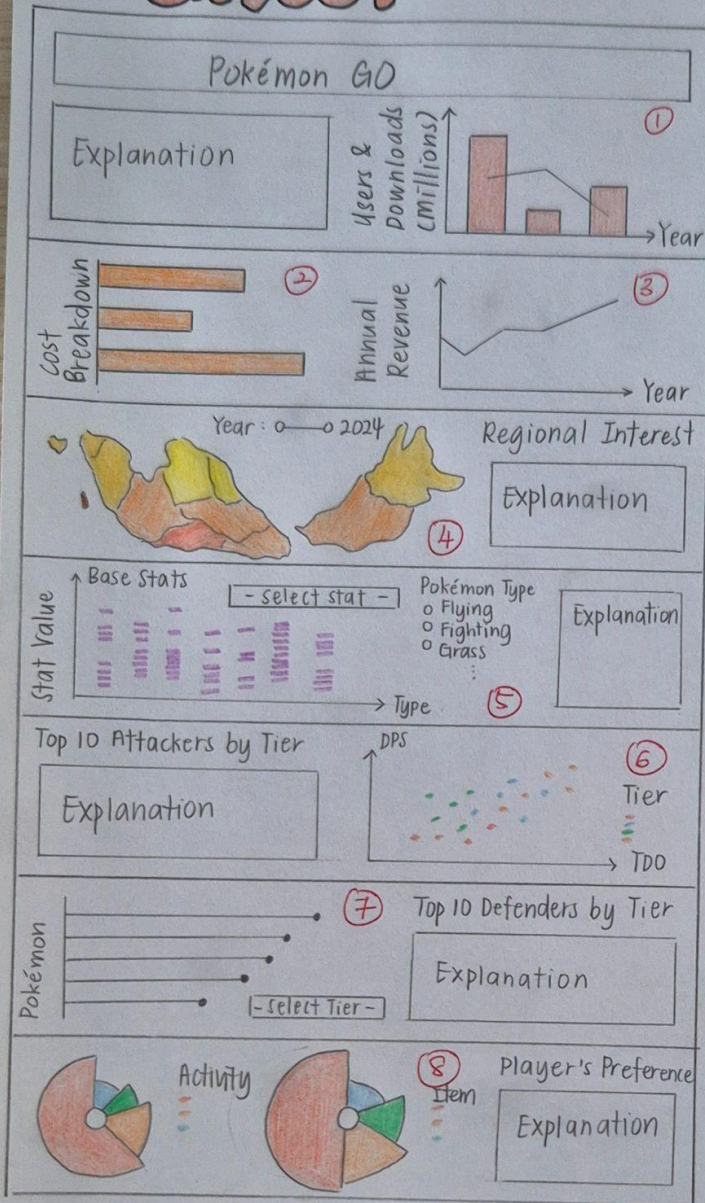 Pokémon GO
Explanation
Users &
Downloads
(Millions)
1
Year
Cost
Breakdown
2
Annual
Revenue
3
Year
Year: 2024
Regional Interest
Explanation
4
Stat Value
Base Stats
- Select stat -
Pokémon Type
Flying
Fighting
Grass
Explanation
Type
5
Top 10 Attackers by Tier
Explanation
DPS
6
Tier
TDO
Pokémon
7
- Select Tier -
Top 10 Defenders by Tier
Explanation
Activity
8
Item
Player's Preference
Explanation